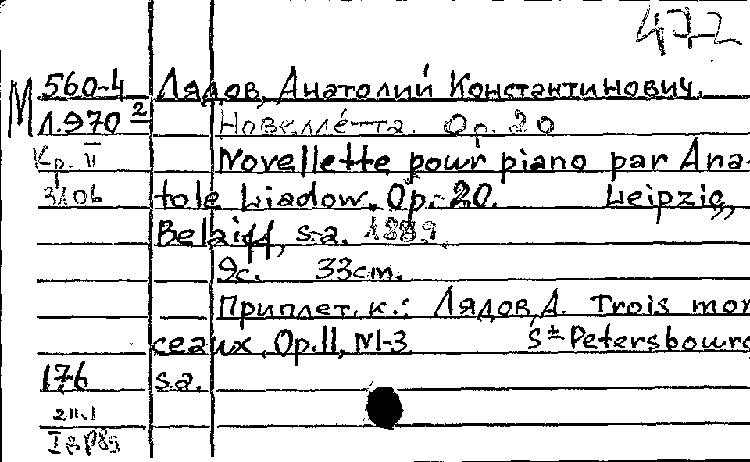 472
М 560-4 Лядов, Анатолий Константинович.
Л.970² Новеллетта. Op. 20
Кр. II Novellette pour piano par Ana-
3106 tole Liadow. Op. 20. Leipzig,
Belaiff, s.a. 1889.
9с. 33cm.
Приплет. к.: Лядов, А. Trois mor
ceaux, Op.11, N1-3. St Petersbourg
176 s.a.